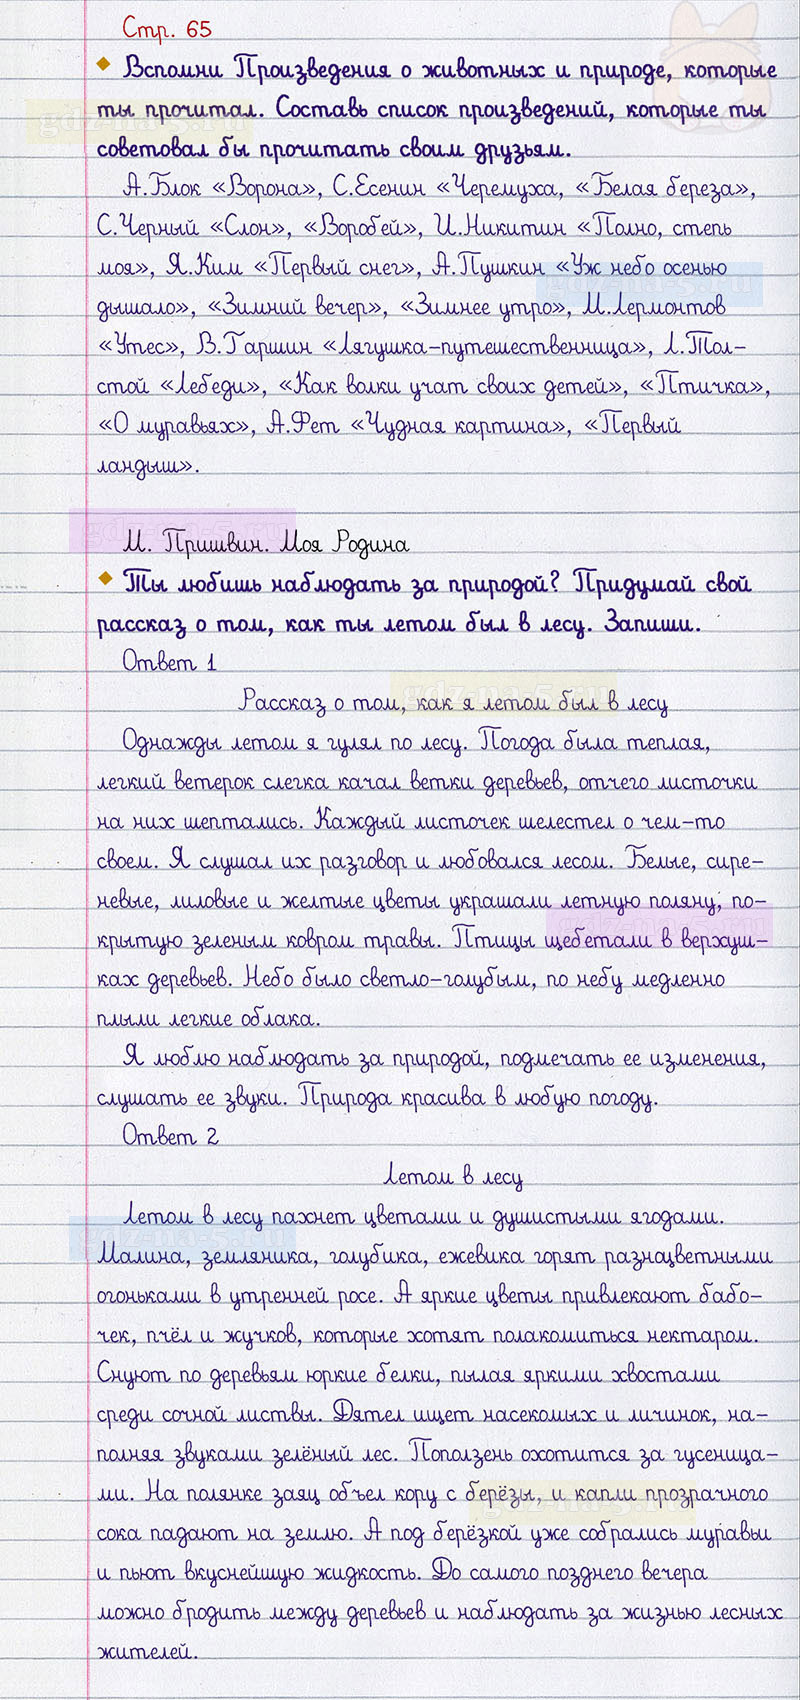 Стр. 65
Вспомни Произведения о животных и природе, которые
ты прочитал. Составь список произведений, которые ты
советовал бы прочитать своим друзьям.
А.Блок «Ворона», С.Есенин «Черемуха, «Белая береза»,
С.Черный «Слон», «Воробей», И.Никитин «Полно, степь
моя», Я.Ким «Первый снег», А.Пушкин «Уж небо осенью
дышало», «Зимний вечер», «Зимнее утро», М.Лермонтов
«Утес», В.Гаршин «Лягушка-путешественница», Л.Тол-
стой «Лебеди», «Как волки учат своих детей», «Птичка»,
«О муравьях», А.Фет «Чудная картина», «Первый
ландыш».
М. Пришвин. Моя Родина
Ты любишь наблюдать за природой? Придумай свой
рассказ о том, как ты летом был в лесу. Запиши.
Ответ 1
Рассказ о том, как я летом был в лесу
Однажды летом я гулял по лесу. Погода была теплая,
легкий ветерок слегка качал ветки деревьев, отчего листочки
на них шептались. Каждый листочек шелестел о чем-то
своем. Я слушал их разговор и любовался лесом. Белые, сире-
невые, лиловые и желтые цветы украшали летную поляну, по-
крытую зеленым ковром травы. Птицы щебетали в верхуш-
ках деревьев. Небо было светло-голубым, по небу медленно
плыли легкие облака.
Я люблю наблюдать за природой, подмечать ее изменения,
слушать ее звуки. Природа красива в любую погоду.
Ответ 2
Летом в лесу
Летом в лесу пахнет цветами и душистыми ягодами.
Малина, земляника, голубика, ежевика горят разноцветными
огоньками в утренней росе. А яркие цветы привлекают бабо-
чек, пчёл и жучков, которые хотят полакомиться нектаром.
Снуют по деревьям юркие белки, пылая яркими хвостами
среди сочной листвы. Дятел ищет насекомых и личинок, на-
полняя звуками зелёный лес. Поползень охотится за гусеница-
ми. На полянке заяц объел кору с берёзы, и капли прозрачного
сока падают на землю. А под берёзкой уже собрались муравьи
и пьют вкуснейшую жидкость. До самого позднего вечера
можно бродить между деревьев и наблюдать за жизнью лесных
жителей.
gdz-na-5.ru
gdz-na-5.ru
gdz-na-5.ru
gdz-na-5.ru
gdz-na-5.ru
gdz-na-5.ru
gdz-na-5.ru